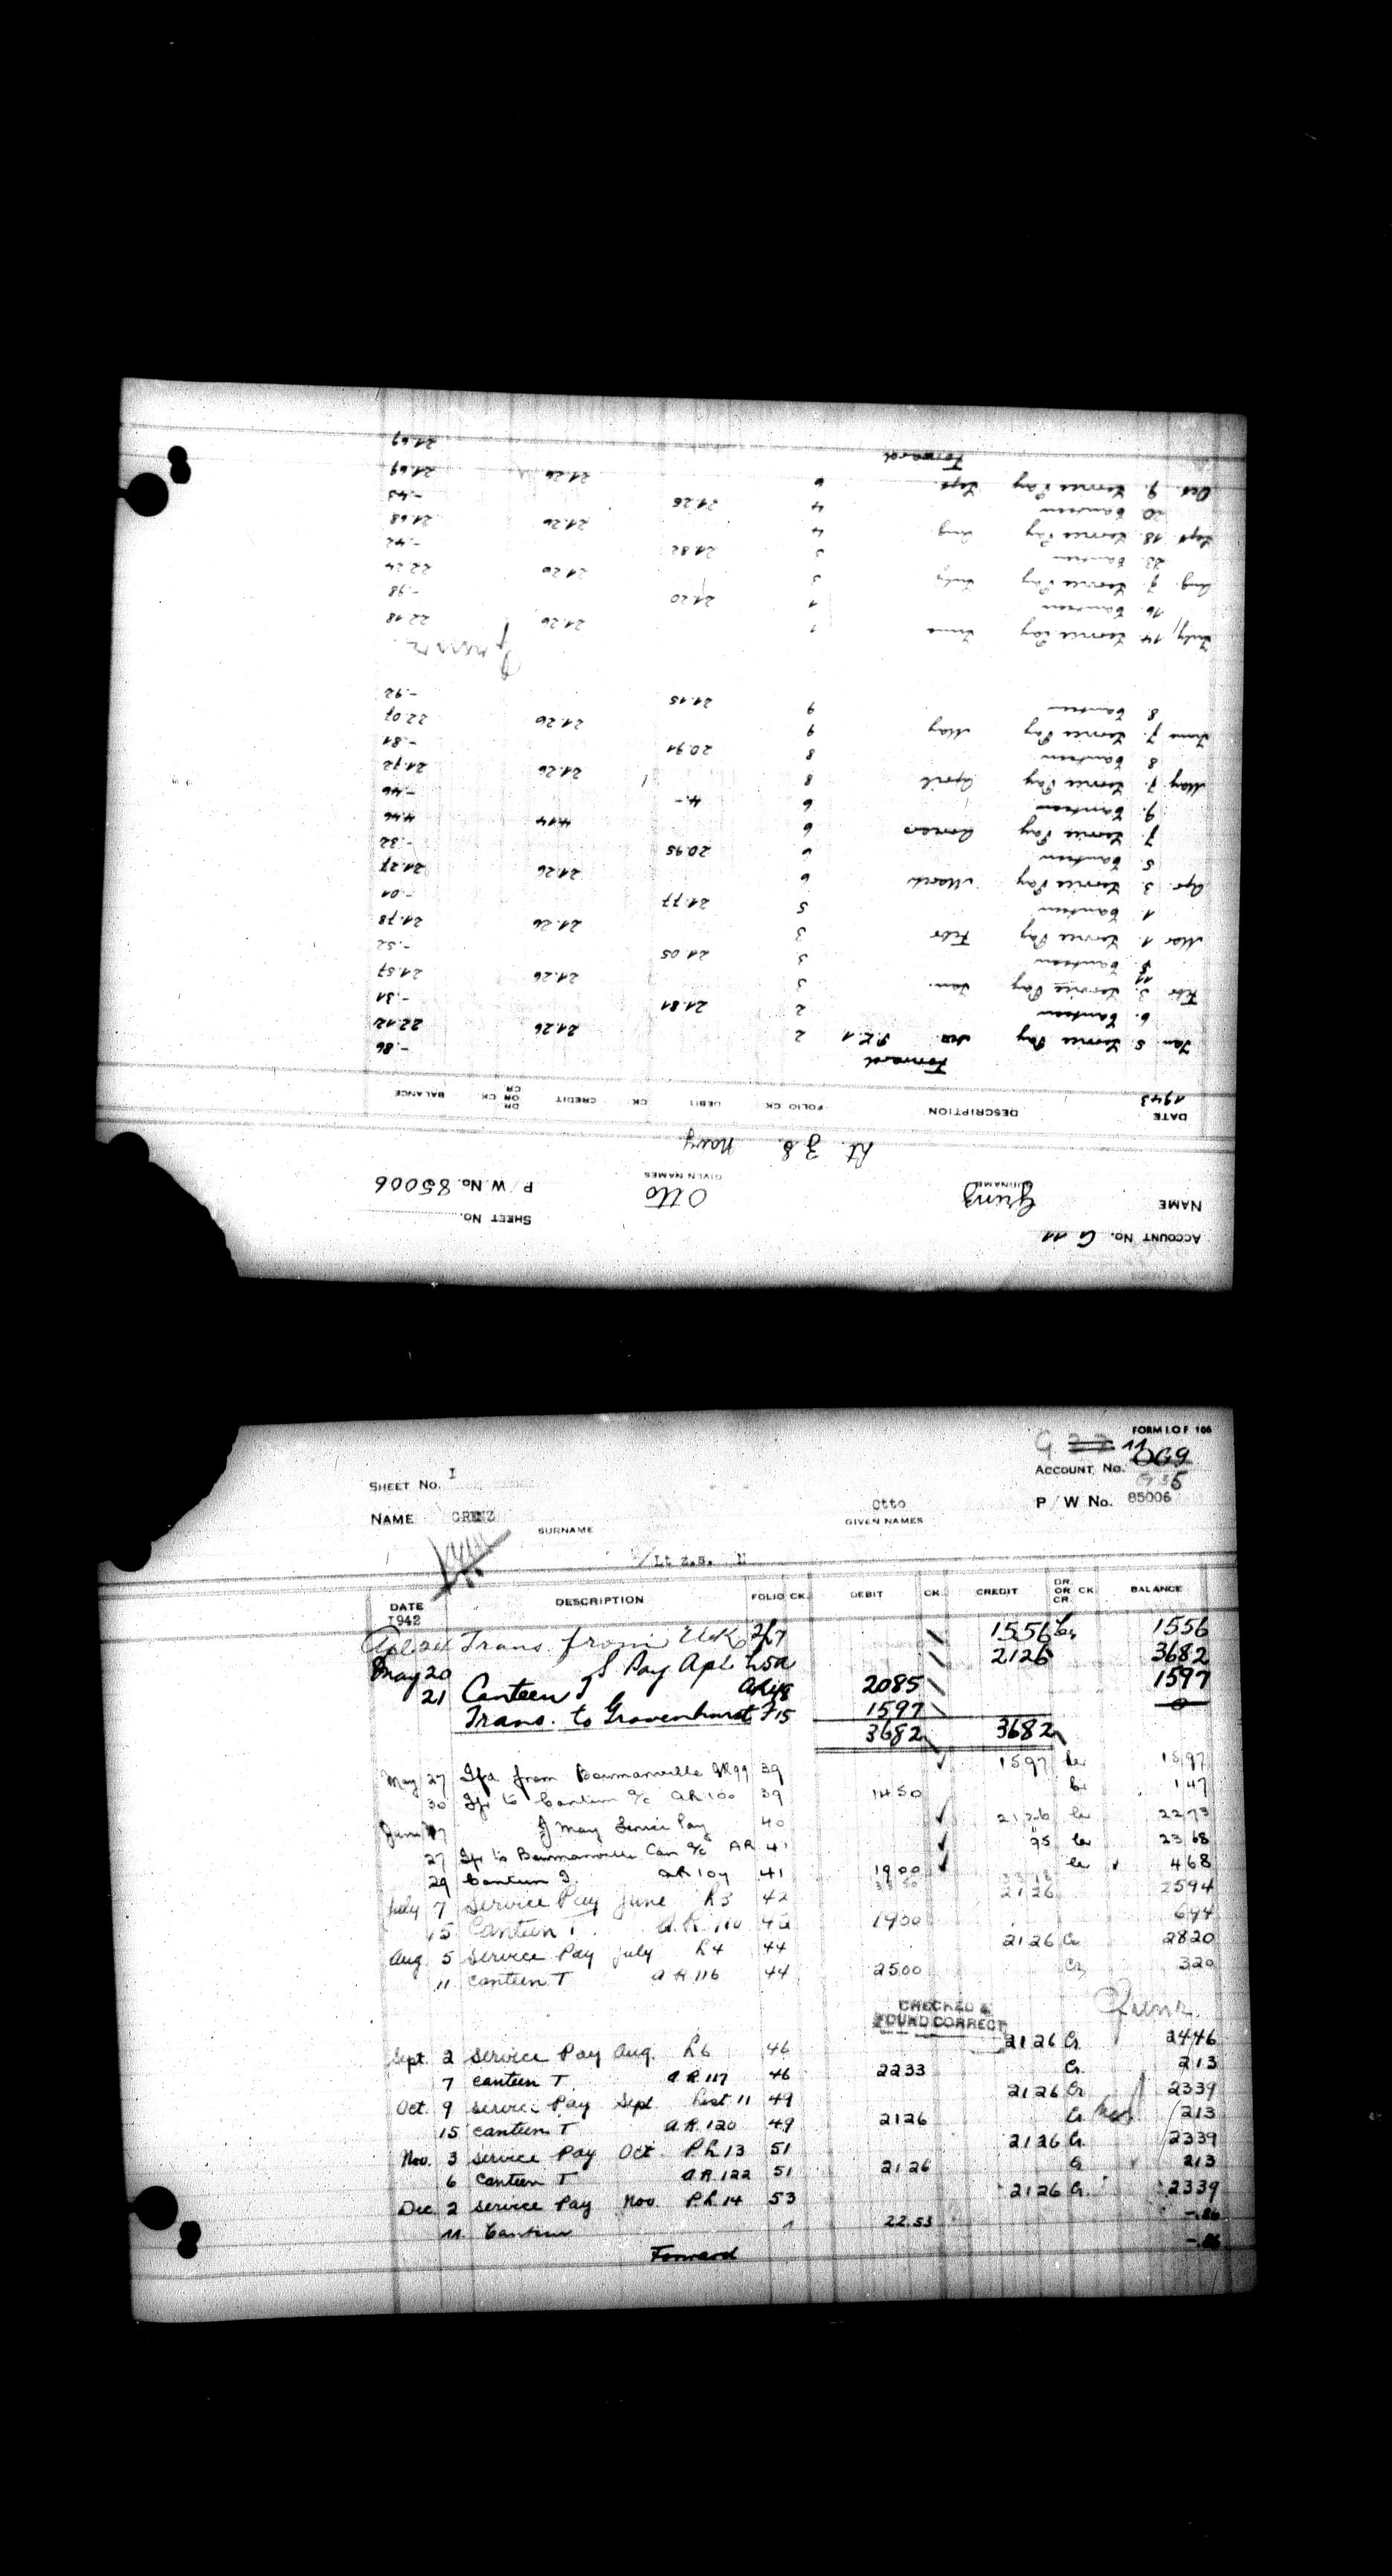 ACCOUNT No. G 11
SHEET No.
NAME Grenz Otto P/W No. 85006
SURNAME GIVEN NAMES
Lt. z. S. Navy
DATE DESCRIPTION FOLIO CK. DEBIT CK. CREDIT DR. OR CR. CK. BALANCE
1943
Forward -.86
Jan. 5. Service Pay Dec. P.L.1 2 21.26 22.12
6. Canteen 2 21.81 -.31
Febr. 3. Service Pay Jan. 3 21.26 21.57
Canteen 3 21.05 -.52
Mar. 1. Service Pay Febr 3 21.26 21.78
1. Canteen 5 21.77 -.01
Apr. 3. Service Pay March 6 21.26 21.27
5. Canteen 6 20.95 -.32
7. Service Pay 6 4.14 4.46
9. Canteen 6 4.- -.46
May 7. Service Pay April 8 21.26 21.72
8 Canteen 8 20.91 -.81
June 7. Service Pay May 9 21.26 22.07
8. Canteen 9 21.15 -.92
July 14. Service Pay June 1 21.26 22.18
16. Canteen 1 21.20 -.98
Aug. 9. Service Pay July 3 21.26 22.24
23. Canteen 3 21.82 -.42
Sept. 18. Service Pay Aug 4 21.26 21.68
20. Canteen 4 21.26 -.43
Oct. 9. Service Pay Sept. 6 21.26 21.69
Forward 21.69
FORM I.O F 106
G 11
SHEET No. I ACCOUNT No. OG9
P/W No. 85006
NAME GRENZ Otto
SURNAME GIVEN NAMES
Lt z.s. N
DATE DESCRIPTION FOLIO CK. DEBIT CK. CREDIT DR. OR CR. CK. BALANCE
1942
Apl 24 Trans. from U.K. 2/7 1556 Cr 1556
May 20 S Pay Apl L5a 2126 3682
21 Canteen T AR48 2085 1597
Trans. to Gravenhurst F15 1597 0
3682 3682
May 27 Tfd from Bowmanville AR99 39 1597 Cr 1597
30 Tfr to Canteen a/c AR100 39 1450 Cr 147
June 17 May Service Pay 40 2126 Cr 2273
27 Tfr to Bowmanville Can a/c AR 41 95 Cr 2368
29 Canteen T. AR104 41 1900 Cr 468
July 7 Service Pay June L3 42 2126 2594
15 Canteen T. A.R. 110 42 1900 694
Aug. 5 Service Pay July L4 44 2126 Cr 2820
11 Canteen T A R 116 44 2500 Cr 320
CHECKED &
FOUND CORRECT
Sept. 2 Service Pay Aug. L6 46 2126 Cr 2446
7 Canteen T A R 117 46 2233 Cr 213
Oct. 9 Service Pay Sept List 11 49 2126 Cr 2339
15 Canteen T A.R. 120 49 2126 Cr 213
Nov. 3 Service Pay Oct P.L 13 51 2126 Cr 2339
6 Canteen T A.R. 122 51 2126 Cr 213
Dec. 2 Service Pay Nov. P.L. 14 53 2126 Cr 2339
11. Canteen 1 22.53 -.86
Forward -.86